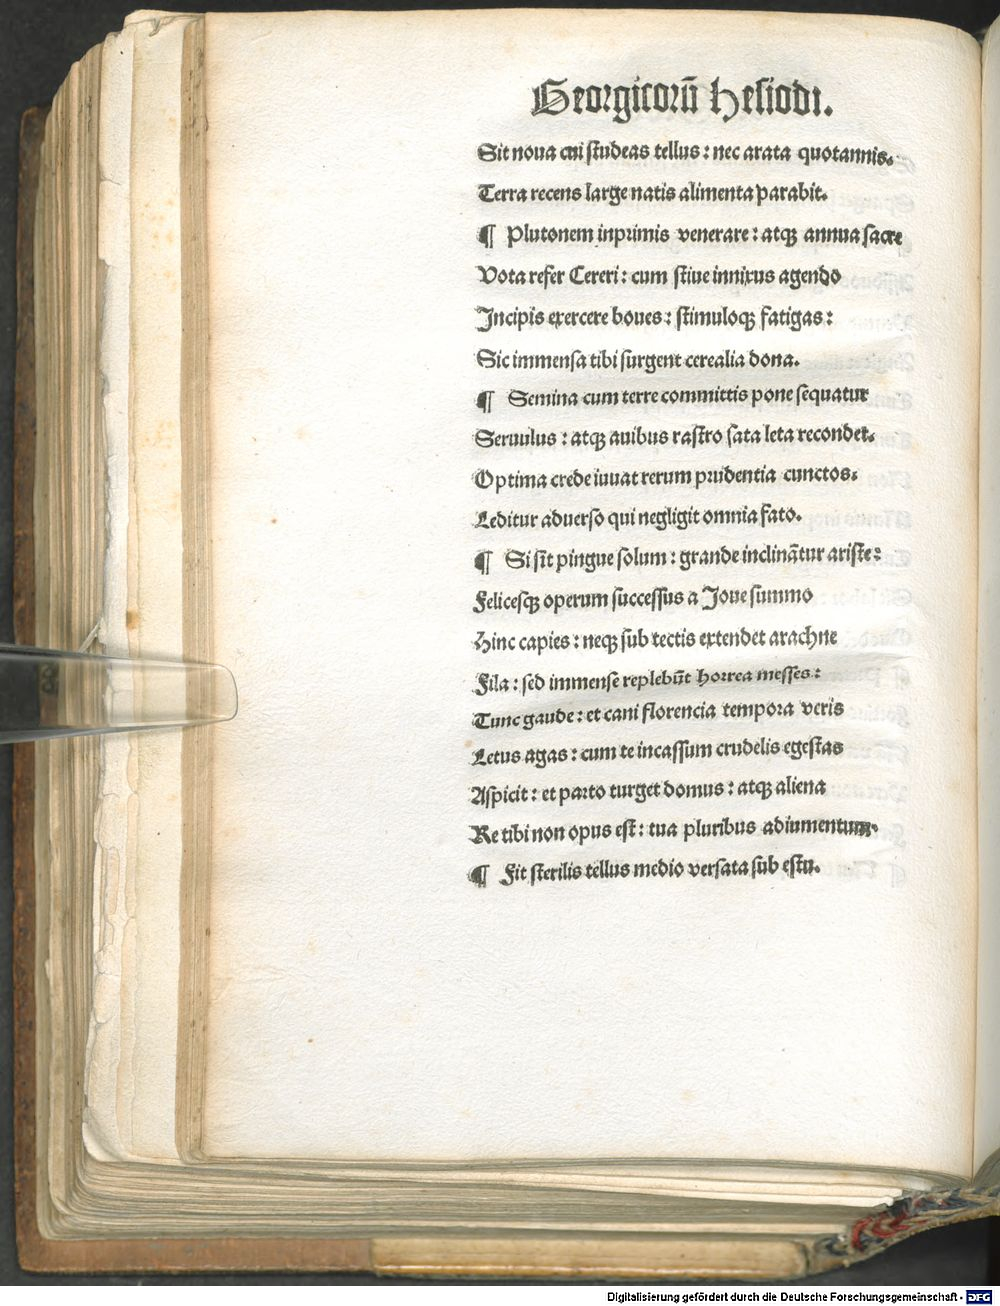 Georgicorū Hesiodi.
Sit noua cui studeas tellus : nec arata quotannis.
Terra recens large natis alimenta parabit.
¶ Plutonem inprimis venerare : atqꝫ annua sacre
Vota refer Cereri : cum stiue innixus agendo
Incipis exercere boues : stimuloqꝫ fatigas :
Sic immensa tibi surgent cerealia dona.
¶ Semina cum terre committis pone sequatur
Seruulus : atqꝫ auibus rastro sata leta recondet.
Optima crede iuuat rerum prudentia cunctos.
Leditur aduerso qui negligit omnia fato.
¶ Si sit pingue solum : grande inclinātur ariste :
Felicesqꝫ operum successus a Ioue summo
Hinc capies : neqꝫ sub tectis extendet arachne
Fila : sed immense replebūt horrea messes :
Tunc gaude : et cani florencia tempora veris
Letus agas : cum te incassum crudelis egestas
Aspicit : et parto turget domus : atqꝫ aliena
Re tibi non opus est : tua pluribus adiumentum.
¶ Fit sterilis tellus medio versata sub estu.
Digitalisierung gefördert durch die Deutsche Forschungsgemeinschaft - DFG